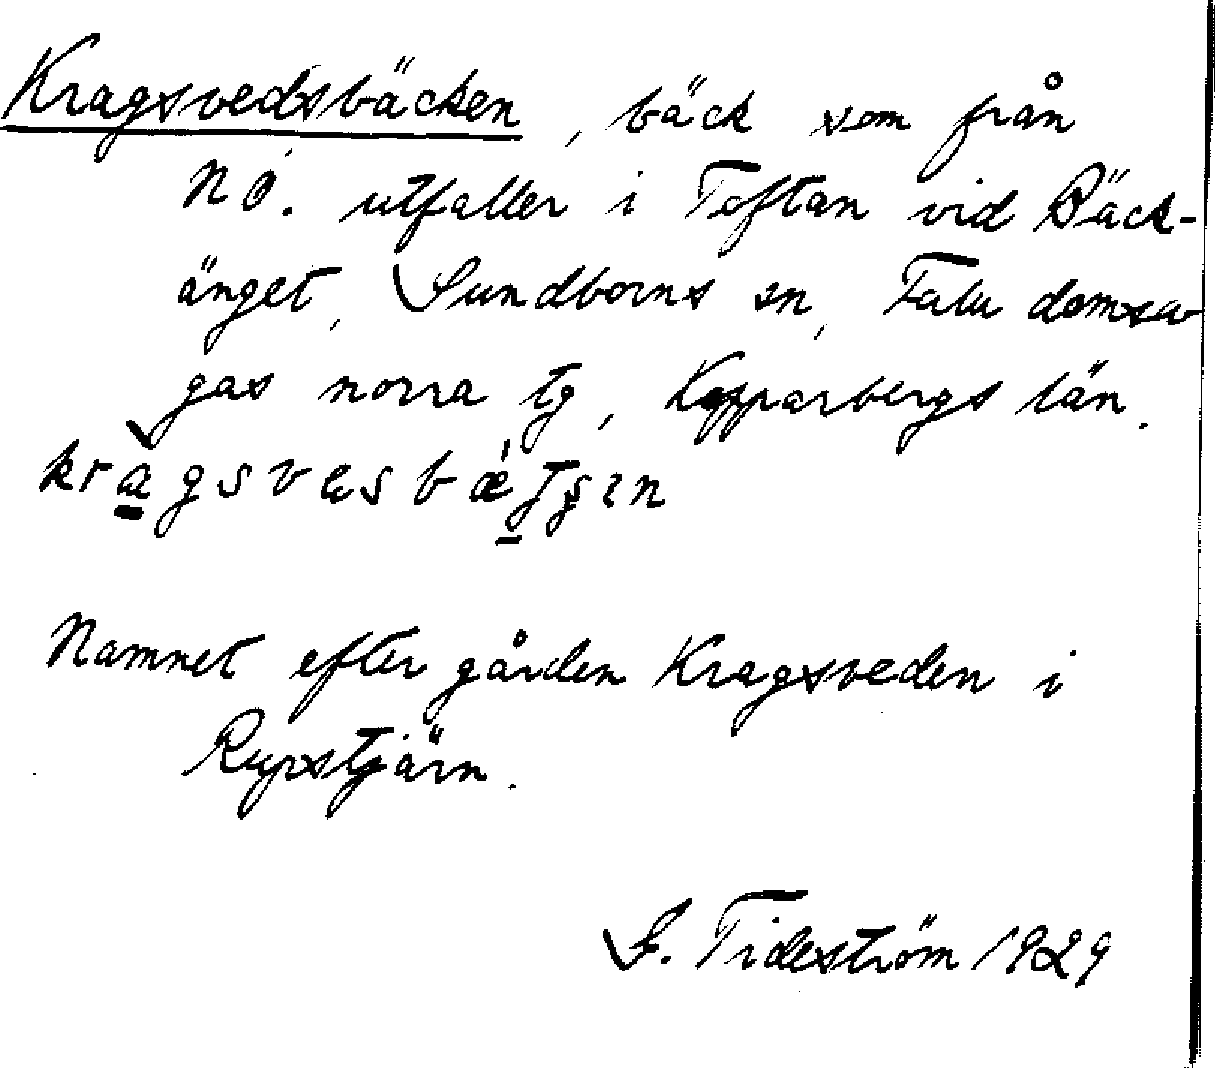 Kragsvedsbäcken, bäck som från
NÖ. utfaller i Toftan vid Bäck-
änget, Sundborns sn, Falu domsa-
gas norra tg, Kopparbergs län.
Namnet efter gården Kragsveden i
Rupstjärn.
G. Tideström 1929